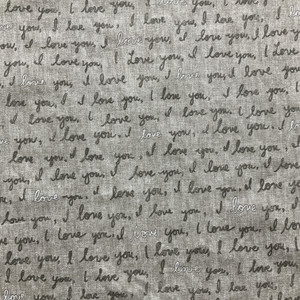 love you, I love you, I love you, I love you,
you, I love you, I love you, I love you,
you, I love you, I Love you, I love you
I love you, I love you, I love you, I love
love you, I love you, I love you,
love you, I love you, I love you, I love
you, I love you, I love you, I love you
you, I love you, I love you, I love you,
you, I love you, I love you, I love
I love you, I love you, I love you,
love you, I love you, I love you, I love you
love you, I love you, I love you, I
you, I love you, I love you, I love you,
love you, I love you, I love you, I